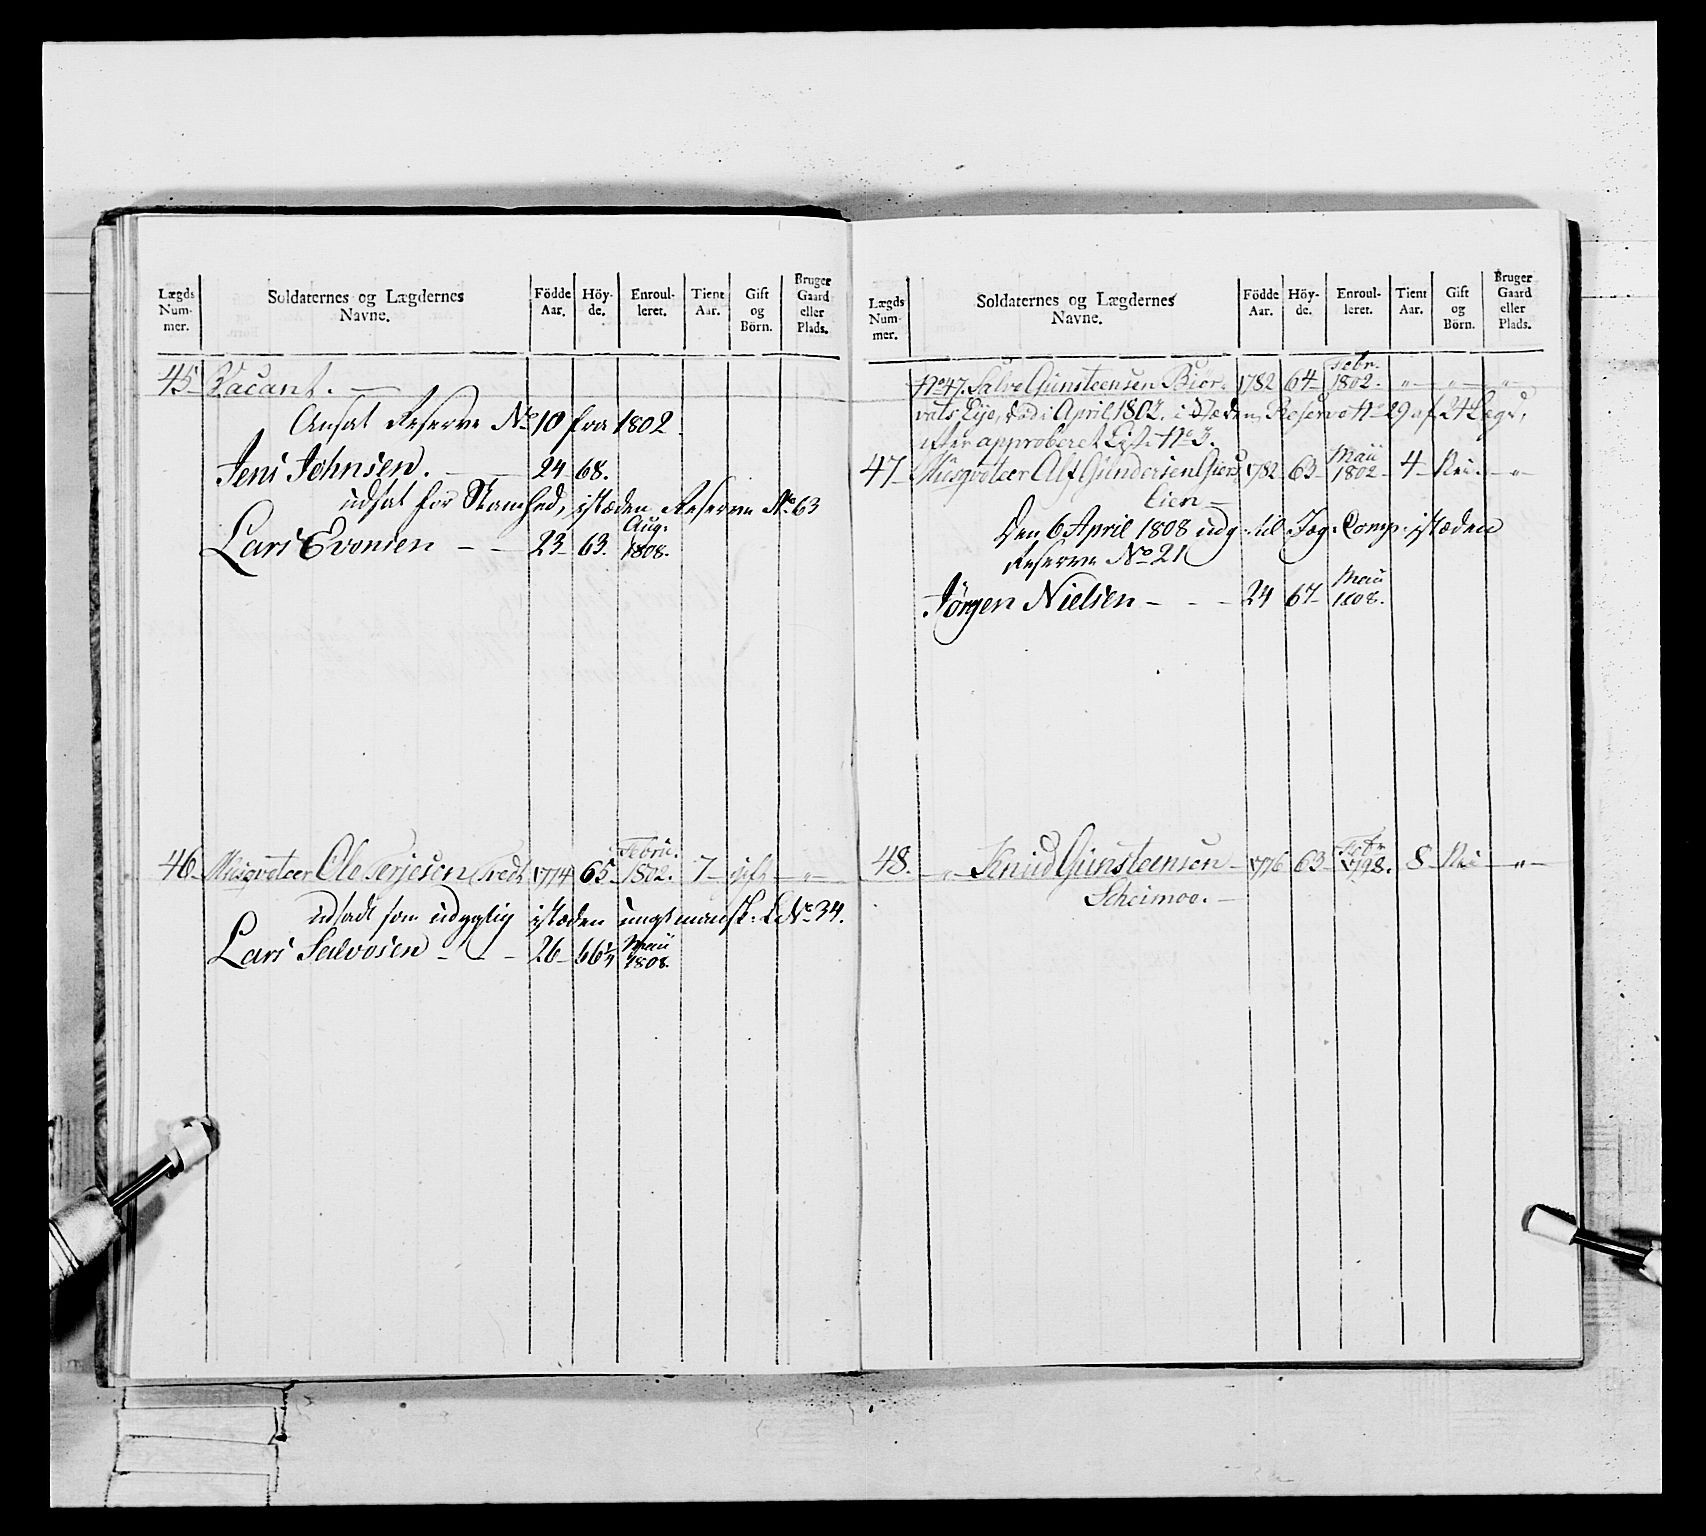 Lægds Num- mer. Soldaternes og Lægdernes Navne. Födde Aar. Höy- de. Enroul- leret. Tient Aar. Gift og Börn. Bruger Gaard eller Plads.
45 Vacant.
Ansat Reserve No 10 fra 1802
Jens Johnsen. 24 68.
udsat for Svanghed, istæden Reserve No 63
Lars Evensen 23 63. Aug. 1808.
46 Musqveteer Ole Terjesen 1774 65 Febru. 1802. 7 gift "
udsadt som udygtig istæden ungt mandsk. L No 34.
Lars Salvosen 26 66½ Maii 1808.
Lægds Num- mer. Soldaternes og Lægdernes Navne. Födde Aar. Höy- de. Enroul- leret. Tient Aar. Gift og Börn. Bruger Gaard eller Plads.
No 47. Salve Gunsteensen Biör- 1782 64 Febr. 1802. " " "
vats Eje, död i April 1802. i Stæden Reserve No 29 af 24 Lægd,
efter approberet List No 3.
47 Musqveteer Alf Gundersen 1782 63 Maii 1802 4 Nei "
lien
Den 6 April 1808 udg. til Jæg. Comp. istæden
Reserve No 21
Jörgen Nielsen 24 67 Maii 1808.
48. " Knud Gunsteensen 1776 63 Febr. 1798. 8 Nei "
Scheimoe.